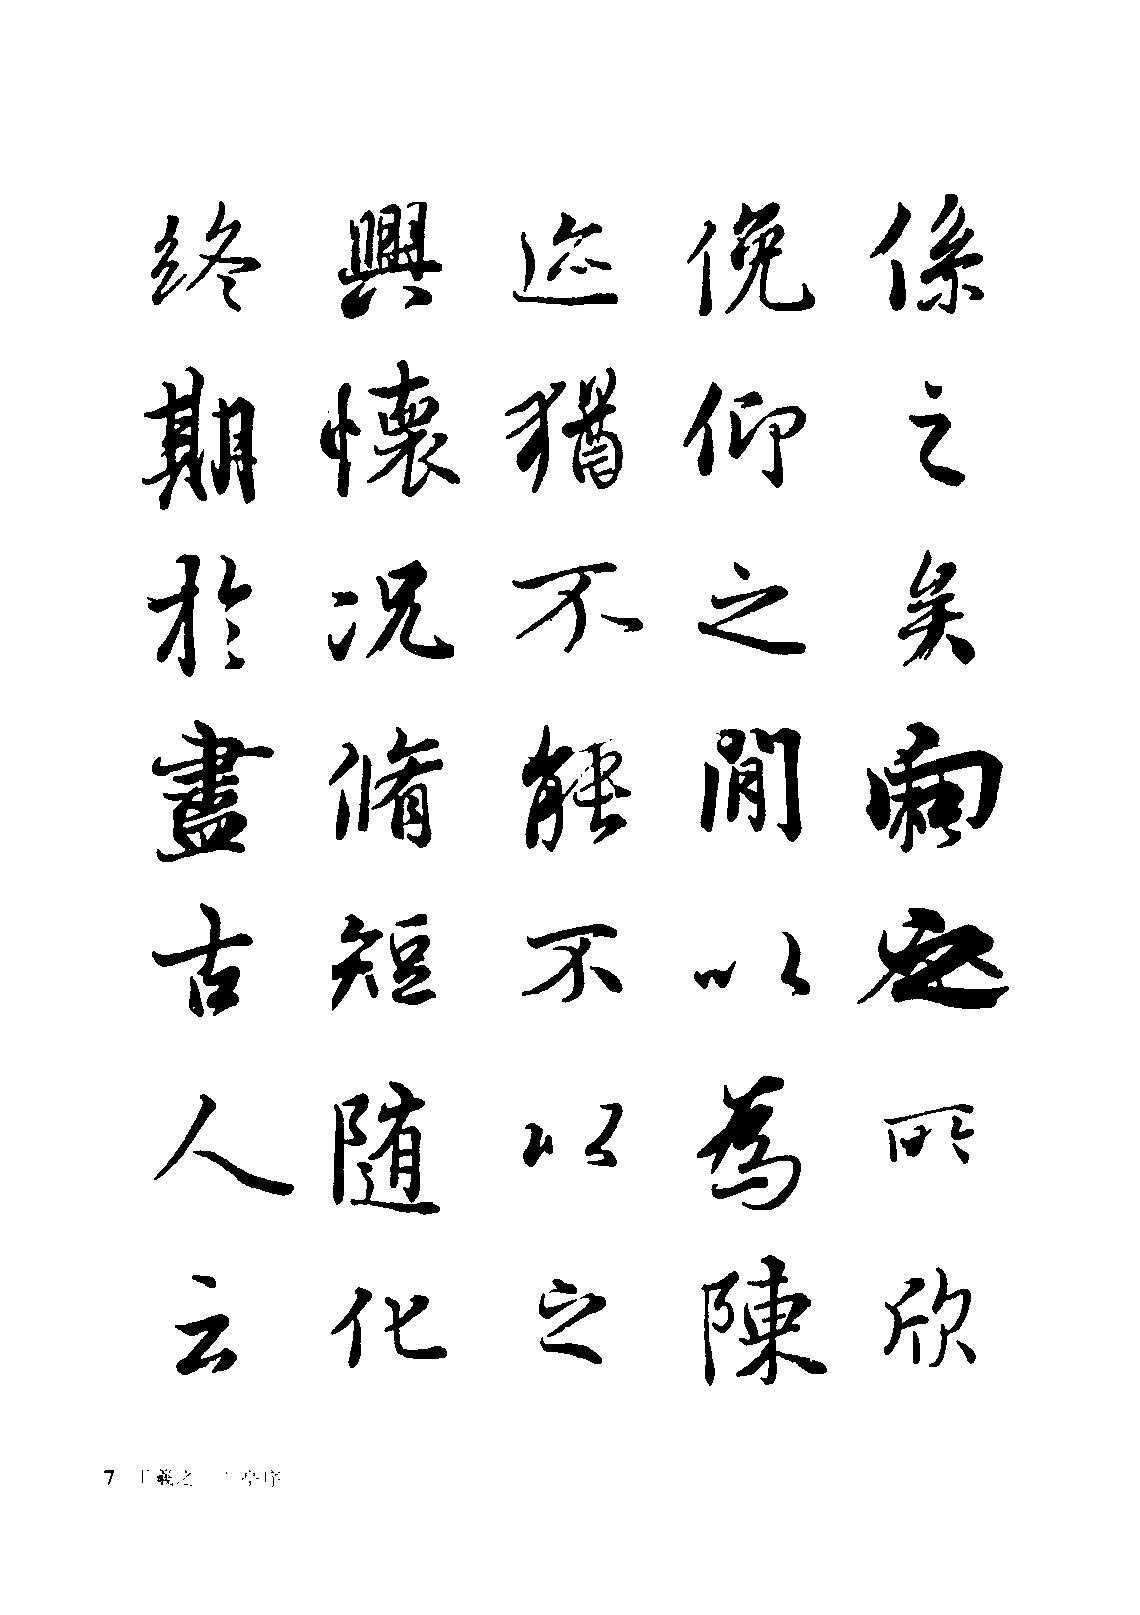 係之矣向之所欣
俛仰之閒以為陳
迹猶不能不以之
興懷况脩短随化
終期於盡古人云
7 王羲之 亭序